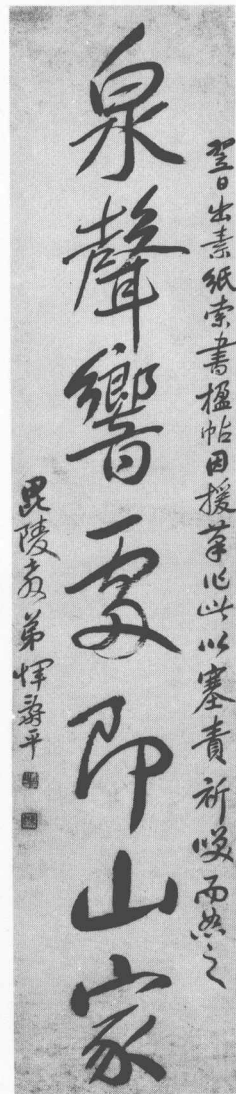 翌日出素紙索書楹帖因援筆作此以塞責祈哂而恕之
泉聲響處即山家
毘陵教弟惲壽平